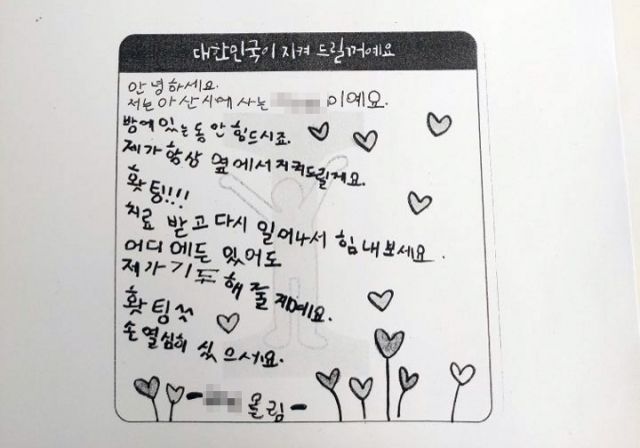 대한민국이 지켜 드릴꺼예요
안녕하세요.
저는 아산시에 사는 이예요.
방에 있는 동안 힘드시죠.
제가 항상 옆에서 지켜드릴게요.
홧팅!!!
치료 받고 다시 일어나서 힘 내보세요.
어디에든 있어도
제가 기도 해 줄 꺼예요.
홧팅
손 열심히 씼으세요.
- 올림 -